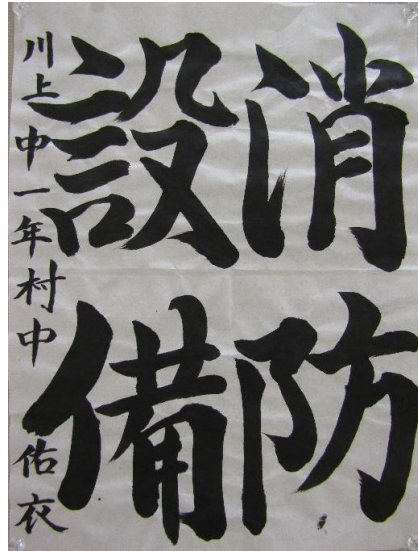 消防
設備
川上中一年村中佑衣